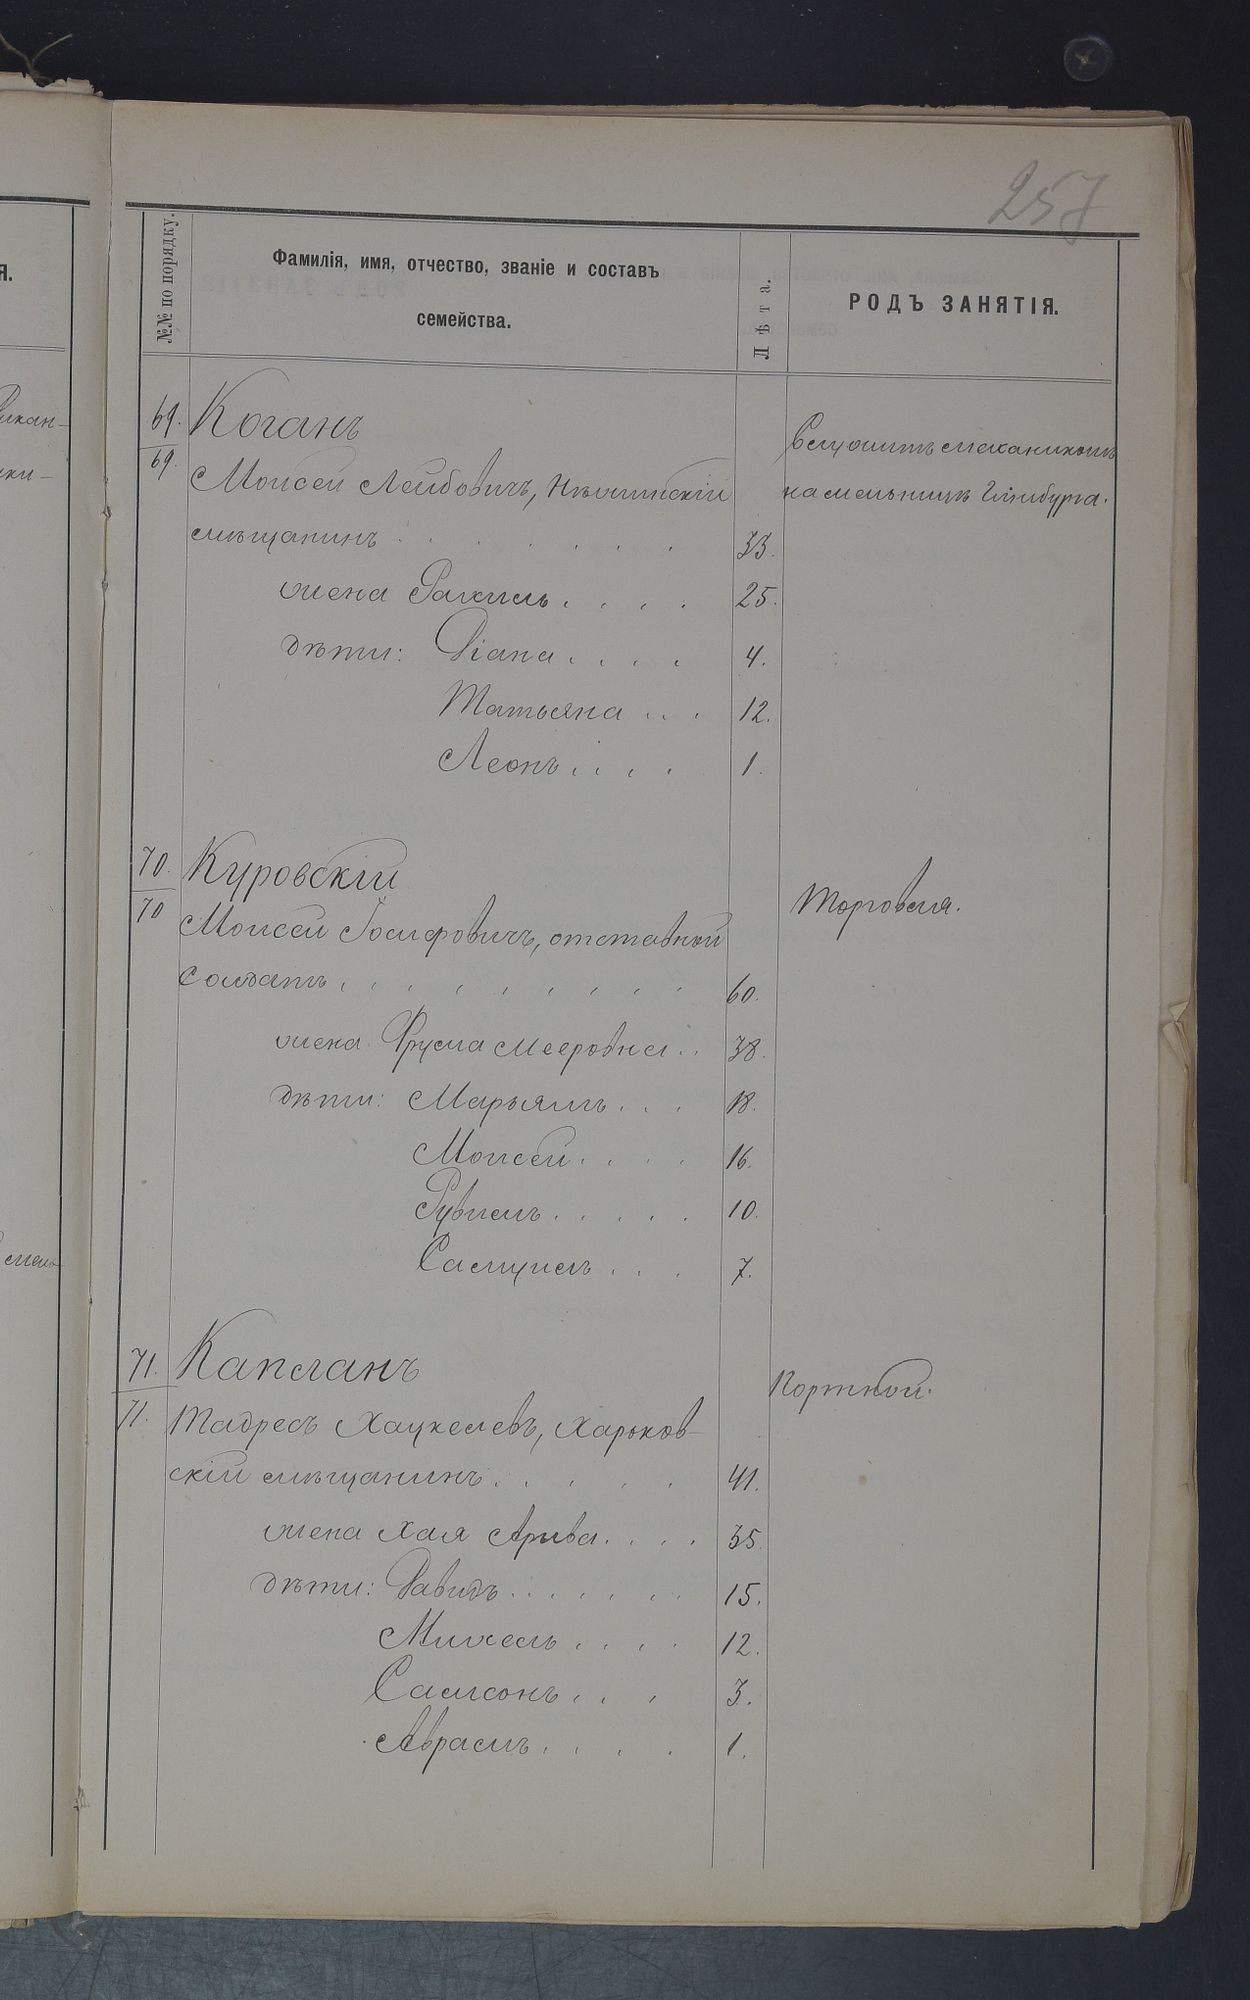 257
№№ по порядку.
Фамилія, имя, отчество, званіе и составъ
семейства.
Лѣта.
РОДЪ ЗАНЯТІЯ.
69. Коганъ
69. Моисей Лейбовичъ, Нѣжинскій
мѣщанинъ . . . . . . 33.
жена Рахиль . . . . 25.
дѣти: Діана . . . . 4.
Татьяна . . . 12.
Леонъ . . . . 1.
механикомъ
на мельницѣ Гинзбурга.
70. Куровскій
70 Моисей Іосифовичъ, отставной
солдатъ . . . . . . . . 60.
жена Фрума Мееровна . . 38.
дѣти: Марьямъ . . . 18.
Моисей . . . . 16.
Рувимъ . . . . . 10.
Самуилъ . . . 7.
Торговля.
71. Капланъ
71. Тадресъ Хацкелевъ, Харьков-
скій мѣщанинъ . . . . . 41.
жена Хая Арива . . . . 35.
дѣти: Давидъ . . . . . . 15.
Михель . . . . 12.
Самсонъ . . . 3.
Аврамъ . . . . 1.
Портной.